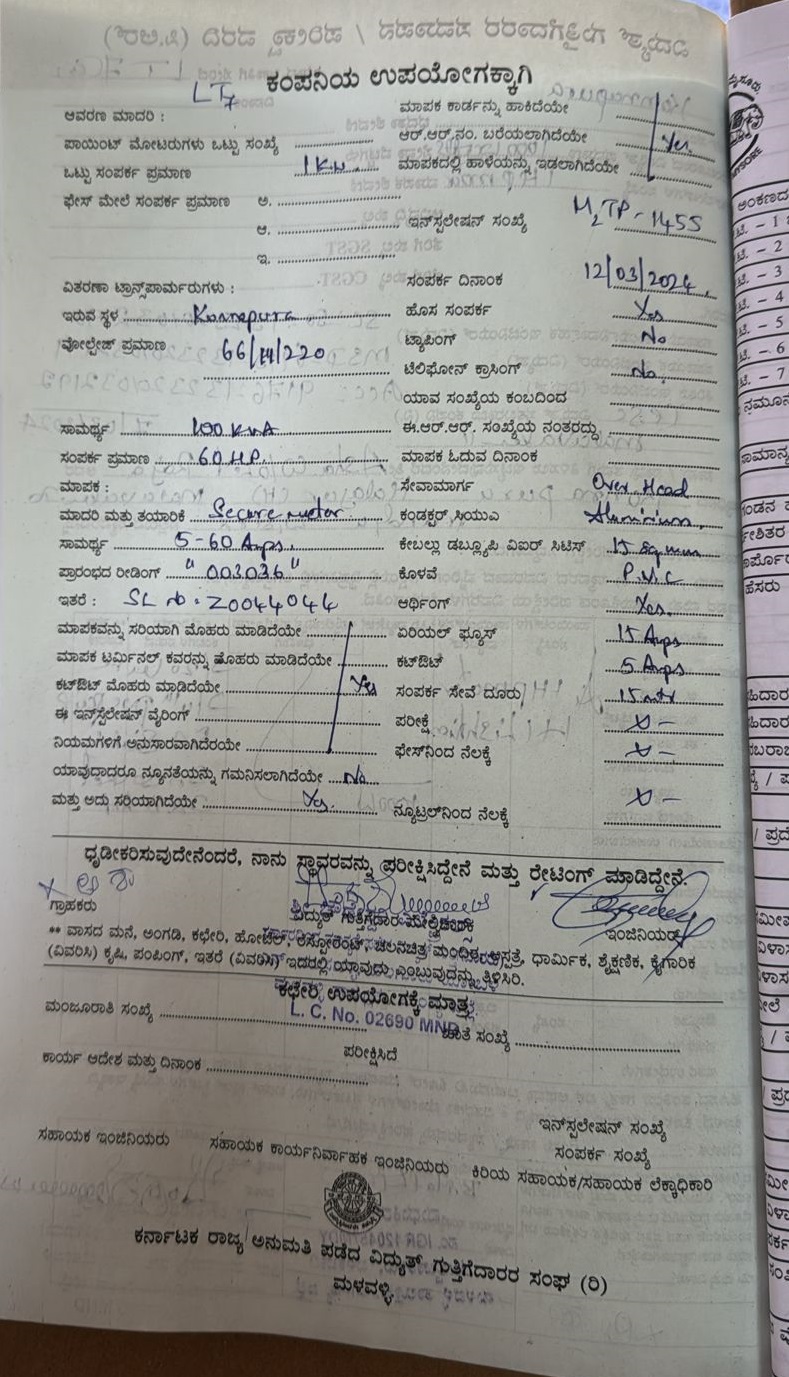 ಕಂಪನಿಯ ಉಪಯೋಗಕ್ಕಾಗಿ
LT7
ಆವರಣ ಮಾದರಿ : ಮಾಪಕ ಕಾರ್ಡನ್ನು ಹಾಕಿದೆಯೇ
ಪಾಯಿಂಟ್ ಮೋಟರುಗಳು ಒಟ್ಟು ಸಂಖ್ಯೆ ಆರ್.ಆರ್.ನಂ. ಬರೆಯಲಾಗಿದೆಯೇ Yes.
ಒಟ್ಟು ಸಂಪರ್ಕ ಪ್ರಮಾಣ 1KW ಮಾಪಕದಲ್ಲಿ ಹಾಳೆಯನ್ನು ಇಡಲಾಗಿದೆಯೇ
ಫೇಸ್ ಮೇಲೆ ಸಂಪರ್ಕ ಪ್ರಮಾಣ ಅ.
ಆ. ಇನ್‌ಸ್ಟಲೇಷನ್ ಸಂಖ್ಯೆ M2TP-1455
ಇ.
ವಿತರಣಾ ಟ್ರಾನ್ಸ್‌ಪಾರ್ಮರುಗಳು : ಸಂಪರ್ಕ ದಿನಾಂಕ 12/03/2024
ಇರುವ ಸ್ಥಳ ಹೊಸ ಸಂಪರ್ಕ Yes
ವೋಲ್ಟೇಜ್ ಪ್ರಮಾಣ 66/11/220 ಟ್ಯಾಪಿಂಗ್ No
ಟೆಲಿಫೋನ್ ಕ್ರಾಸಿಂಗ್ No.
ಯಾವ ಸಂಖ್ಯೆಯ ಕಂಬದಿಂದ
ಸಾಮರ್ಥ್ಯ 100 KVA ಈ.ಆರ್.ಆರ್. ಸಂಖ್ಯೆಯ ನಂತರದ್ದು
ಸಂಪರ್ಕ ಪ್ರಮಾಣ 60 HP. ಮಾಪಕ ಓದುವ ದಿನಾಂಕ
ಮಾಪಕ : ಸೇವಾಮಾರ್ಗ Over Head
ಮಾದರಿ ಮತ್ತು ತಯಾರಿಕೆ Secure meter ಕಂಡಕ್ಟರ್ ಸಿಯುವಿ Aluminium.
ಸಾಮರ್ಥ್ಯ 5-60 Amps. ಕೇಬಲ್ಲು ಡಬ್ಲ್ಯೂಪಿ ವಿಐರ್ ಸಿಟಿಸ್ 15 sq mm
ಪ್ರಾರಂಭದ ರೀಡಿಂಗ್ "003036" ಕೊಳವೆ P.V.C
ಇತರೆ : SL No: Z0044044 ಆರ್ಥಿಂಗ್ Yes.
ಮಾಪಕವನ್ನು ಸರಿಯಾಗಿ ಮೊಹರು ಮಾಡಿದೆಯೇ ಏರಿಯಲ್ ಫ್ಯೂಸ್ 15 Amps
ಮಾಪಕ ಟರ್ಮಿನಲ್ ಕವರನ್ನು ಹೊಹರು ಮಾಡಿದೆಯೇ ಕಟ್‌ಔಟ್ 5 Amps
ಕಟ್‌ಔಟ್ ಮೊಹರು ಮಾಡಿದೆಯೇ Yes ಸಂಪರ್ಕ ಸೇವೆ ದೂರು 15 mtr
ಈ ಇನ್‌ಸ್ಟಲೇಷನ್ ವೈರಿಂಗ್ ಪರೀಕ್ಷೆ
ನಿಯಮಗಳಿಗೆ ಅನುಸಾರವಾಗಿದೆರಯೇ ಫೇಸ್‌ನಿಂದ ನೆಲಕ್ಕೆ
ಯಾವುದಾದರೂ ನ್ಯೂನತೆಯನ್ನು ಗಮನಿಸಲಾಗಿದೆಯೇ No
ಮತ್ತು ಅದು ಸರಿಯಾಗಿದೆಯೇ Yes. ನ್ಯೂಟ್ರಲ್‌ನಿಂದ ನೆಲಕ್ಕೆ
ಧೃಡೀಕರಿಸುವುದೇನೆಂದರೆ, ನಾನು ಸ್ಥಾವರವನ್ನು ಪರೀಕ್ಷಿಸಿದ್ದೇನೆ ಮತ್ತು ರೇಟಿಂಗ್ ಮಾಡಿದ್ದೇನೆ.
ಗ್ರಾಹಕರು ವಿದ್ಯುತ್ ಗುತ್ತಿಗೆದಾರ ಇಂಜಿನಿಯರ್
** ವಾಸದ ಮನೆ, ಅಂಗಡಿ, ಕಛೇರಿ, ಹೋಟೆಲ್, ರೆಸ್ಟೋರೆಂಟ್, ಚಲನಚಿತ್ರ ಮಂದಿರ, ಆಸ್ಪತ್ರೆ, ಧಾರ್ಮಿಕ, ಶೈಕ್ಷಣಿಕ, ಕೈಗಾರಿಕ
(ವಿವರಿಸಿ) ಕೃಷಿ, ಪಂಪಿಂಗ್, ಇತರೆ (ವಿವರಿಸಿ) ಇದರಲ್ಲಿ ಯಾವುದು ಎಂಬುವುದನ್ನು ತಿಳಿಸಿರಿ.
ಕಛೇರಿ ಉಪಯೋಗಕ್ಕೆ ಮಾತ್ರ
L. C. No. 02690 MND
ಮಂಜೂರಾತಿ ಸಂಖ್ಯೆ ಖಾತೆ ಸಂಖ್ಯೆ
ಪರೀಕ್ಷಿಸಿದೆ
ಕಾರ್ಯ ಆದೇಶ ಮತ್ತು ದಿನಾಂಕ
ಇನ್‌ಸ್ಟಲೇಷನ್ ಸಂಖ್ಯೆ
ಸಂಪರ್ಕ ಸಂಖ್ಯೆ
ಸಹಾಯಕ ಇಂಜಿನಿಯರು ಸಹಾಯಕ ಕಾರ್ಯನಿರ್ವಾಹಕ ಇಂಜಿನಿಯರು ಕಿರಿಯ ಸಹಾಯಕ/ಸಹಾಯಕ ಲೆಕ್ಕಾಧಿಕಾರಿ
ಕರ್ನಾಟಕ ರಾಜ್ಯ ಅನುಮತಿ ಪಡೆದ ವಿದ್ಯುತ್ ಗುತ್ತಿಗೆದಾರರ ಸಂಘ (ರಿ)
ಮಳವಳ್ಳಿ